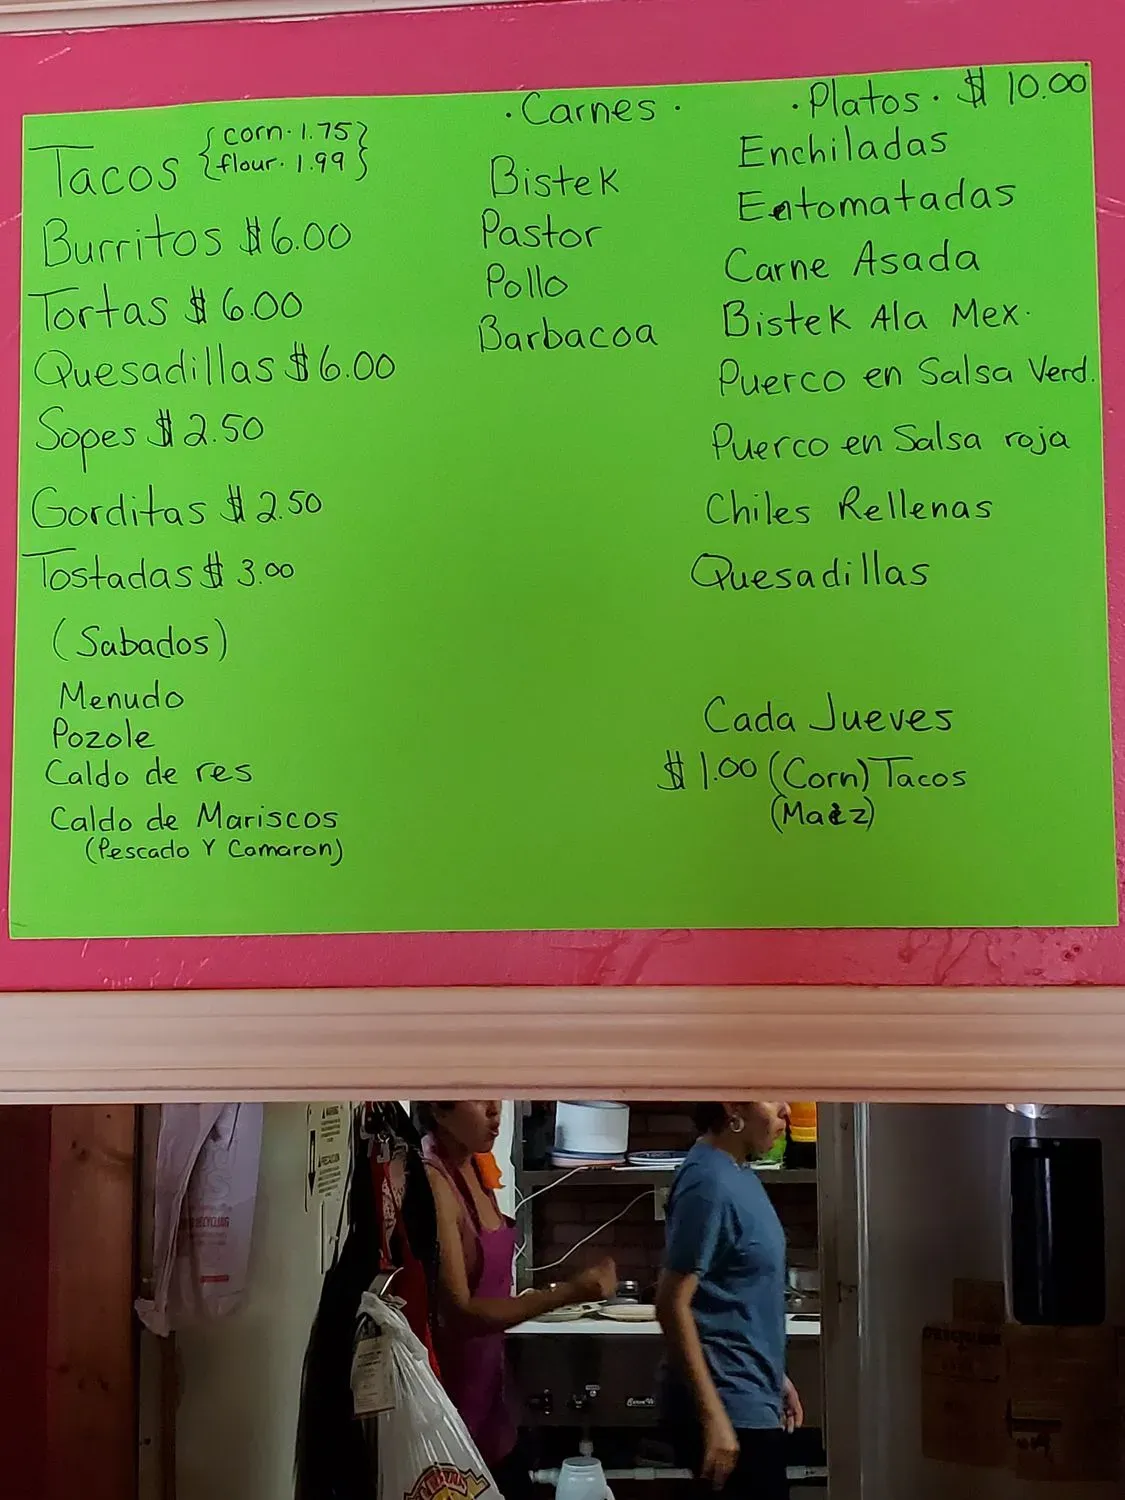 Tacos {corn. 1.75
flour. 1.99}
Burritos $6.00
Tortas $6.00
Quesadillas $6.00
Sopes $2.50
Gorditas $2.50
Tostadas $3.00
(Sabados)
Menudo
Pozole
Caldo de res
Caldo de Mariscos
(Pescado Y Camaron)
· Carnes ·
Bistek
Pastor
Pollo
Barbacoa
· Platos · $10.00
Enchiladas
Entomatadas
Carne Asada
Bistek Ala Mex.
Puerco en Salsa Verd.
Puerco en Salsa roja
Chiles Rellenas
Quesadillas
Cada Jueves
$1.00 (Corn) Tacos
(Maiz)
RECYCLING